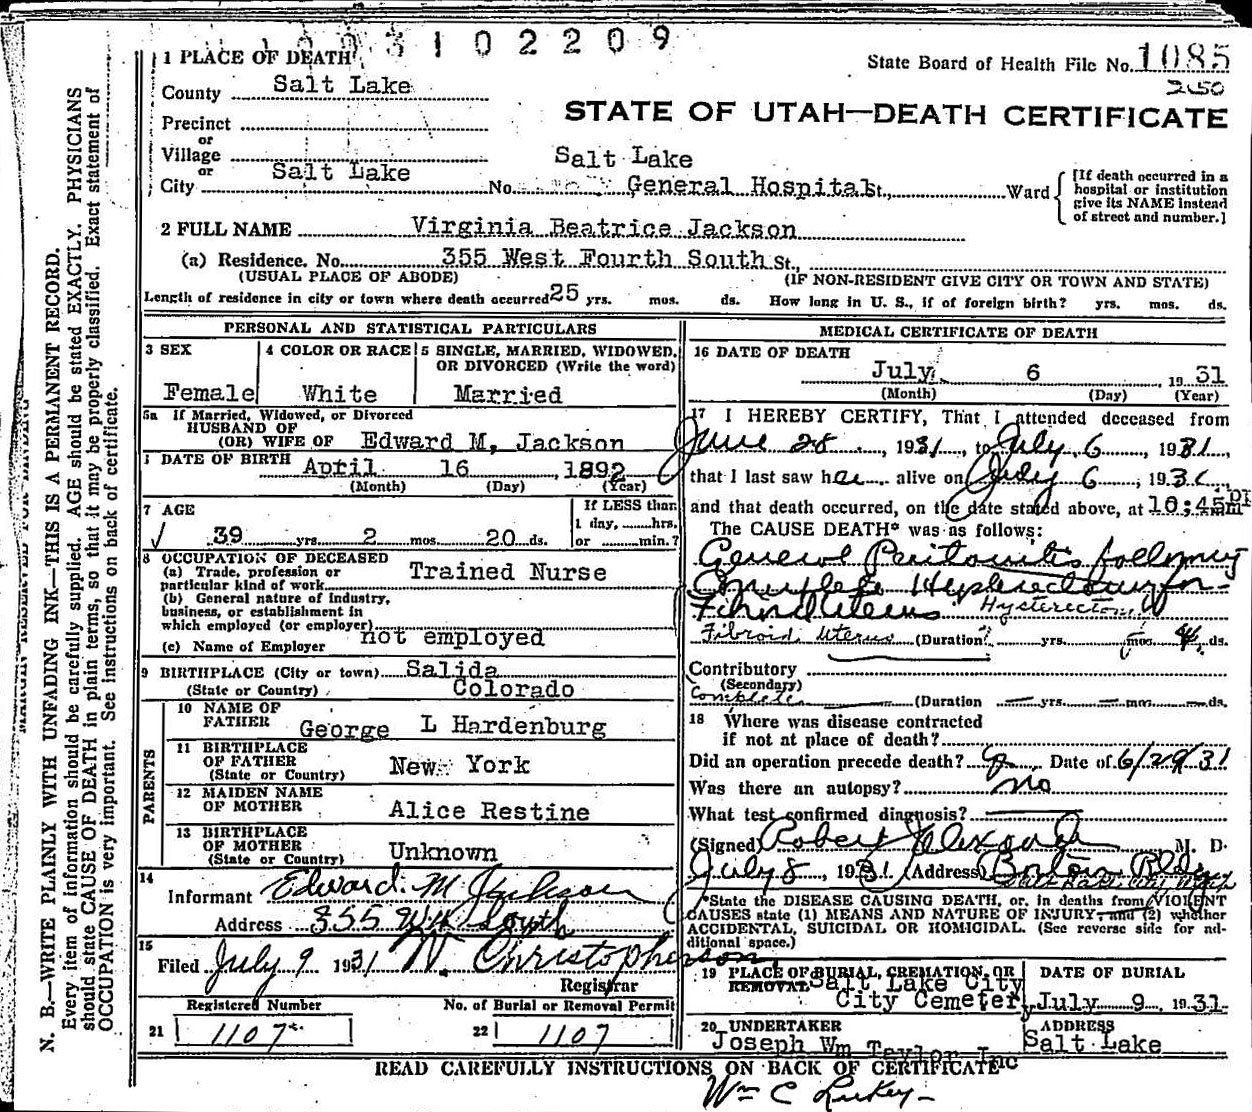 3102209
State Board of Health File No. 1085
2650
1 PLACE OF DEATH
County Salt Lake
STATE OF UTAH—DEATH CERTIFICATE
Precinct
or
Village
or
City Salt Lake No. Salt Lake General Hospital St., Ward
[If death occurred in a hospital or institution give its NAME instead of street and number.]
2 FULL NAME Virginia Beatrice Jackson
(a) Residence. No. 355 West Fourth South St.,
(USUAL PLACE OF ABODE) (IF NON-RESIDENT GIVE CITY OR TOWN AND STATE)
Length of residence in city or town where death occurred 25 yrs. mos. ds. How long in U. S., if of foreign birth? yrs. mos. ds.
PERSONAL AND STATISTICAL PARTICULARS
3 SEX 4 COLOR OR RACE 5 SINGLE, MARRIED, WIDOWED,
OR DIVORCED (Write the word)
Female White Married
5a If Married, Widowed, or Divorced
HUSBAND OF
(OR) WIFE OF Edward M. Jackson
DATE OF BIRTH April 16 1892
(Month) (Day) (Year)
7 AGE If LESS than
1 day, hrs.
39 yrs. 2 mos. 20 ds. or min.?
8 OCCUPATION OF DECEASED
(a) Trade, profession or
particular kind of work Trained Nurse
(b) General nature of Industry,
business, or establishment in
which employed (or employer)
not employed
(c) Name of Employer
9 BIRTHPLACE (City or town) Salida
(State or Country) Colorado
PARENTS
10 NAME OF
FATHER George L Hardenburg
11 BIRTHPLACE
OF FATHER New York
(State or Country)
12 MAIDEN NAME
OF MOTHER Alice Restine
13 BIRTHPLACE
OF MOTHER
(State or Country) Unknown
14
Informant Edward M Jackson
Address 355 W 4 South
15
Filed July 9 1931 W. Christopherson
Registrar
Registered Number No. of Burial or Removal Permit
21 1107 22 1107
MEDICAL CERTIFICATE OF DEATH
16 DATE OF DEATH
July 6, 1931
(Month) (Day) (Year)
17 I HEREBY CERTIFY, That I attended deceased from
June 28, 1931, to July 6, 1931,
that I last saw her alive on July 6, 1931
and that death occurred, on the date stated above, at 10:45 Pm
The CAUSE DEATH* was as follows:
General Peritonitis following
Complete Hysterectomy for
Fibroid Uterus Hysterectomy
Fibroid Uterus (Duration? yrs. mos. 4 ds.
Contributory
(Secondary)
Complete (Duration yrs. mos. ds.
18 Where was disease contracted
if not at place of death?
Did an operation precede death? Date of 6/29/31
Was there an autopsy? no
What test confirmed diagnosis?
(Signed) Robert Alexander M. D.
July 8, 1931. (Address) Boston Bldg
Salt Lake City Utah
*State the DISEASE CAUSING DEATH, or, in deaths from VIOLENT
CAUSES state (1) MEANS AND NATURE OF INJURY, and (2) whether
ACCIDENTAL, SUICIDAL OR HOMICIDAL. (See reverse side for additional space.)
19 PLACE OF BURIAL, CREMATION, OR DATE OF BURIAL
REMOVAL Salt Lake City
City Cemetery July 9 1931
20 UNDERTAKER ADDRESS
Joseph Wm Taylor Inc Salt Lake
READ CAREFULLY INSTRUCTIONS ON BACK OF CERTIFICATE
Wm C Lukey
N. B.—WRITE PLAINLY WITH UNFADING INK—THIS IS A PERMANENT RECORD.
Every item of information should be carefully supplied. AGE should be stated EXACTLY. PHYSICIANS
should state CAUSE OF DEATH in plain terms, so that it may be properly classified. Exact statement of
OCCUPATION is very important. See instructions on back of certificate.